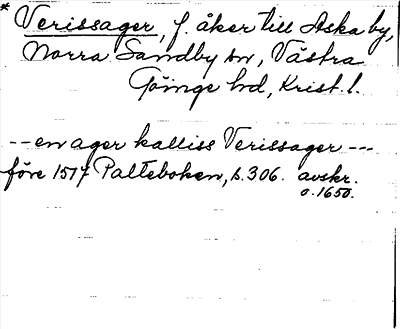 * Verissager, f. åker till Aska by,
Norra Sandby sn, Västra
Göinge hd, Krist. l.
-- en ager kalliss Verissager ---
före 1517 Palteboken, s. 306. avskr.
o. 1650.